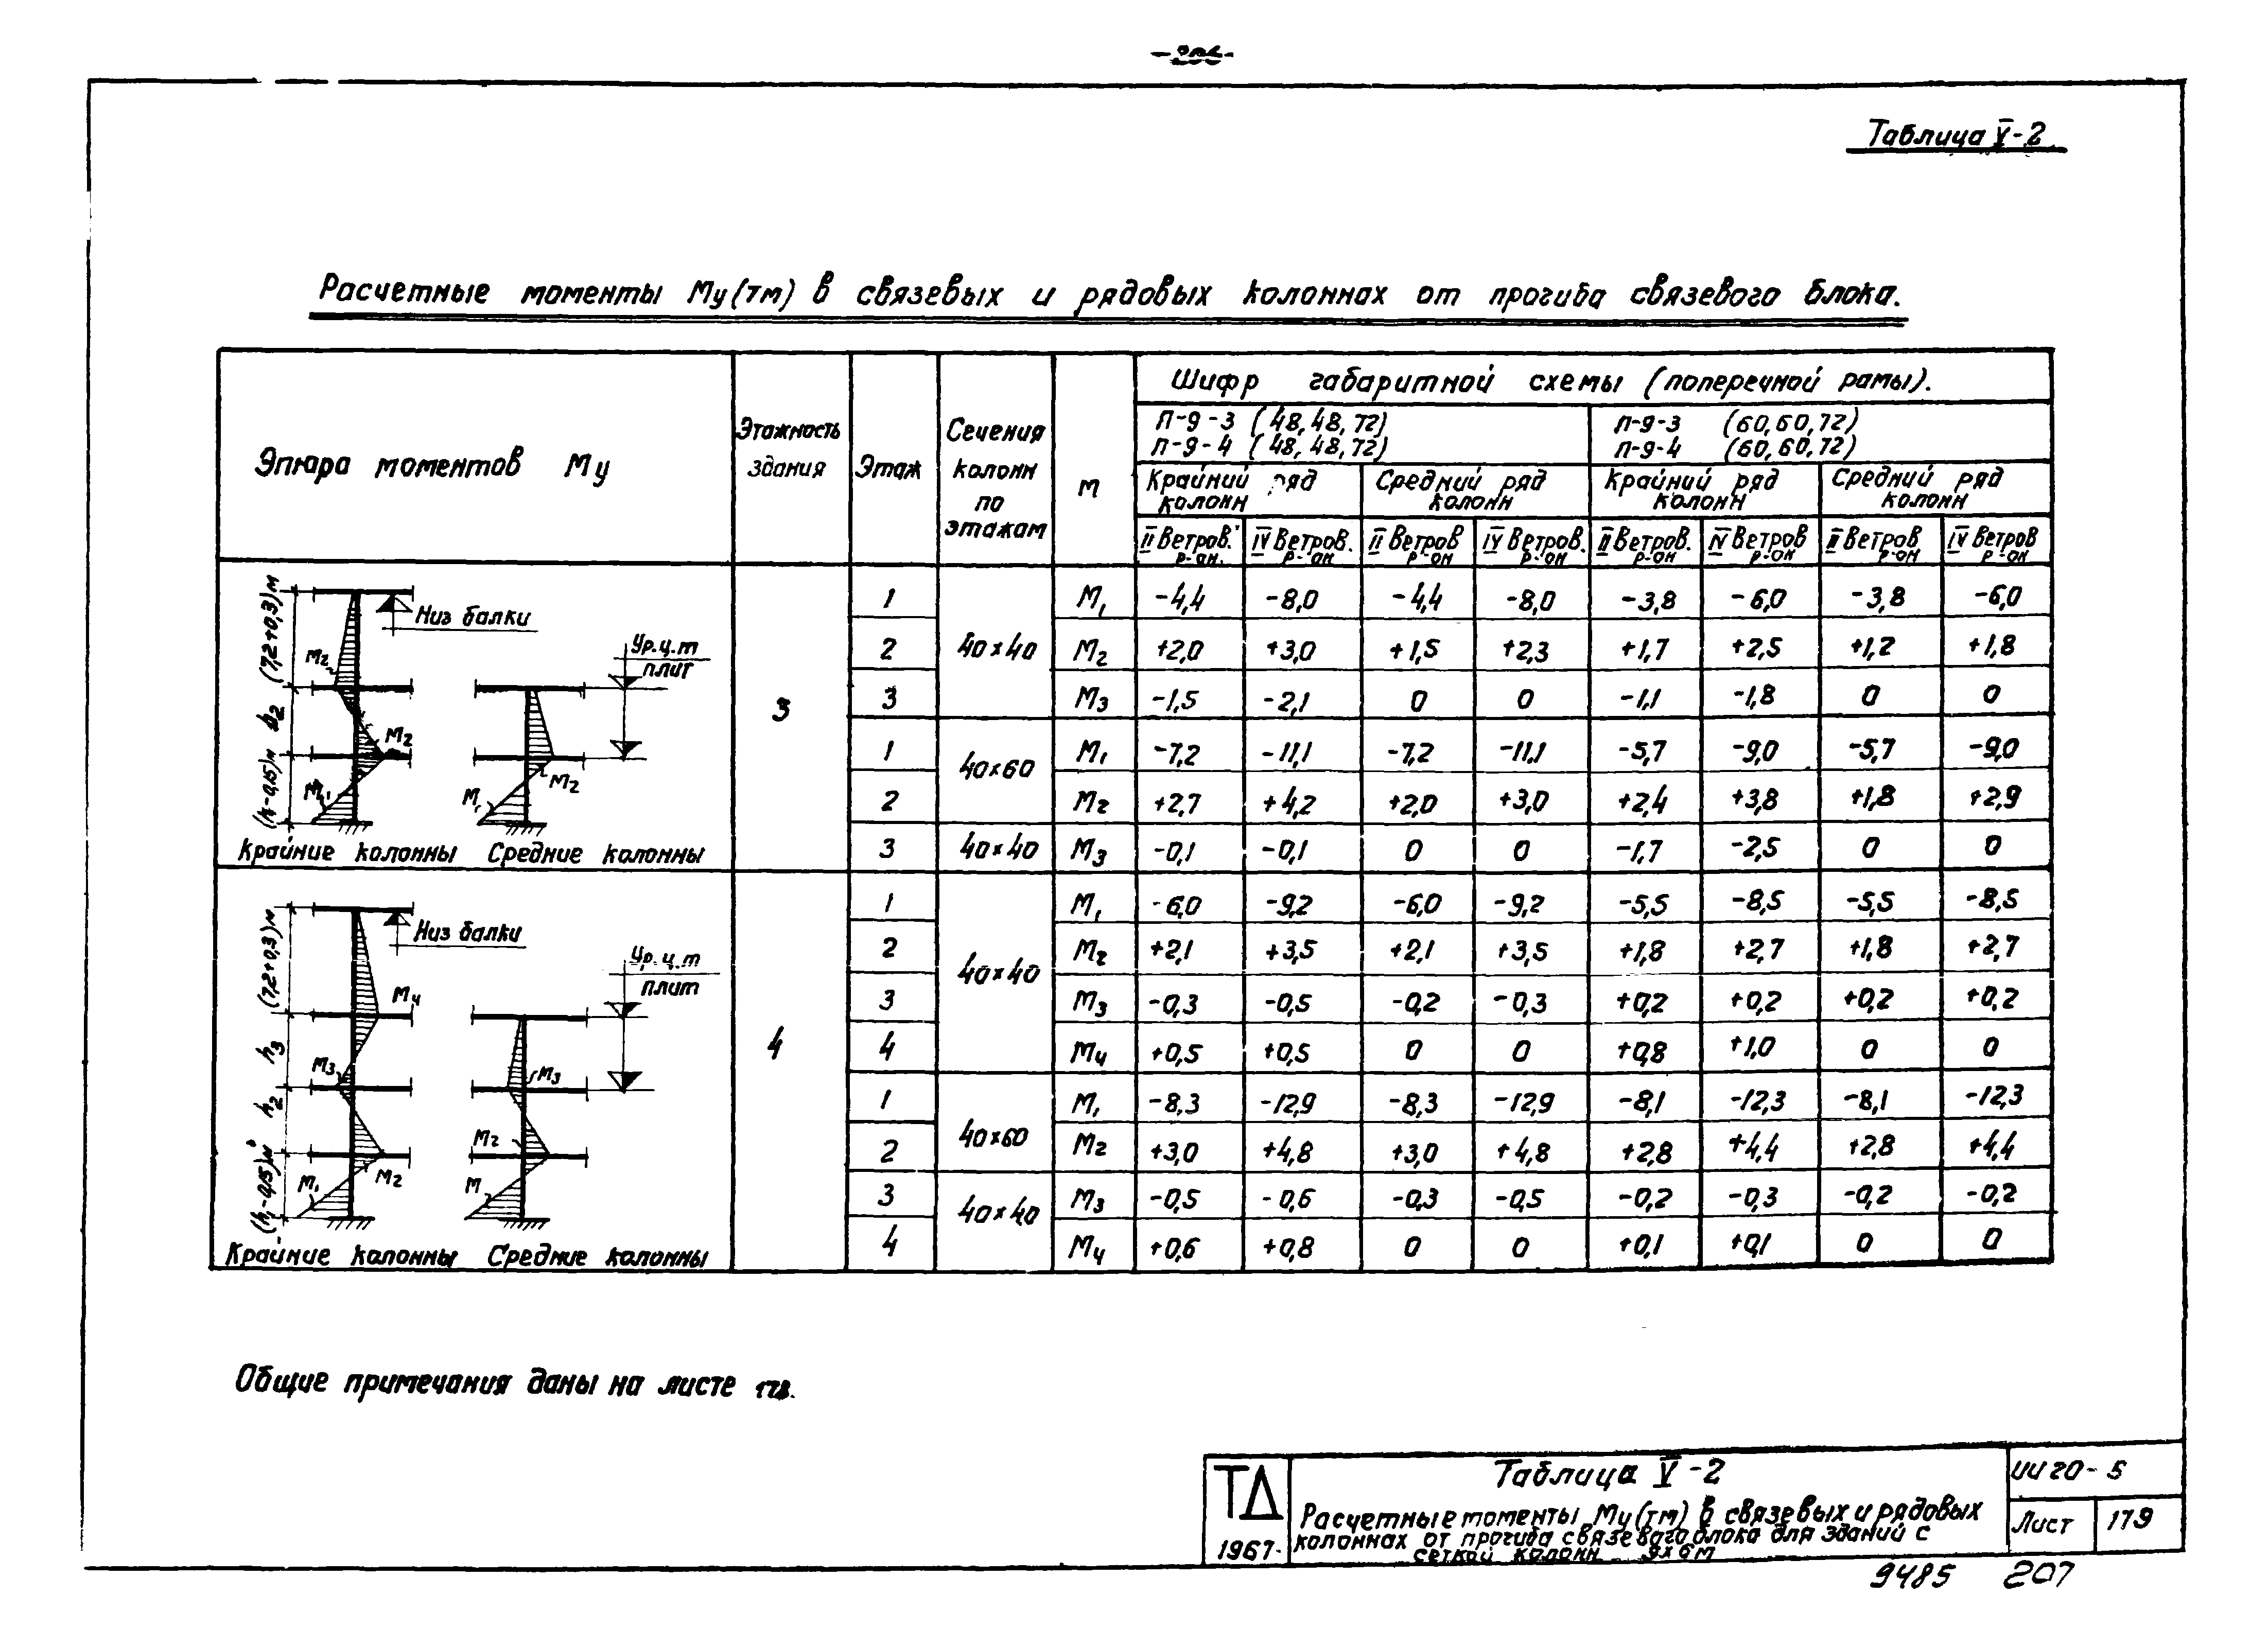 Таблица V-2
Расчетные моменты Му(тм) в связевых и рядовых колоннах от прогиба связевого блока.
Эпюра моментов Му
Этажность здания
Этаж
Сечения колонн по этажам
М
Шифр габаритной схемы (поперечной рамы).
П-9-3 (48,48,72) П-9-3 (60,60,72)
П-9-4 (48,48,72) П-9-4 (60,60,72)
Крайний ряд колонн Средний ряд колонн Крайний ряд колонн Средний ряд колонн
II Ветров. р-он. IV Ветров. р-он II Ветров р-он IV Ветров. р-он II Ветров. р-он IV Ветров р-он II Ветров р-он IV Ветров р-он
(7,2+0,3)м
h2
(h-0,15)м
Низ балки
Ур.ц.т
плит
М2
М2
М1
М2
М1
Крайние колонны Средние колонны
3
1 40×40 М1 -4,4 -8,0 -4,4 -8,0 -3,8 -6,0 -3,8 -6,0
2 М2 +2,0 +3,0 +1,5 +2,3 +1,7 +2,5 +1,2 +1,8
3 М3 -1,5 -2,1 0 0 -1,1 -1,8 0 0
1 40×60 М1 -7,2 -11,1 -7,2 -11,1 -5,7 -9,0 -5,7 -9,0
2 М2 +2,7 +4,2 +2,0 +3,0 +2,4 +3,8 +1,8 +2,9
3 40×40 М3 -0,1 -0,1 0 0 -1,7 -2,5 0 0
(7,2+0,3)м
h3
h2
(h1-0,15)м
Низ балки
Ур.ц.т
плит
М4
М3
М3
М2
М1
М2
М
Крайние колонны Средние колонны
4
1 40×40 М1 -6,0 -9,2 -6,0 -9,2 -5,5 -8,5 -5,5 -8,5
2 М2 +2,1 +3,5 +2,1 +3,5 +1,8 +2,7 +1,8 +2,7
3 М3 -0,3 -0,5 -0,2 -0,3 +0,2 +0,2 +0,2 +0,2
4 М4 +0,5 +0,5 0 0 +0,8 +1,0 0 0
1 40×60 М1 -8,3 -12,9 -8,3 -12,9 -8,1 -12,3 -8,1 -12,3
2 М2 +3,0 +4,8 +3,0 +4,8 +2,8 +4,4 +2,8 +4,4
3 40×40 М3 -0,5 -0,6 -0,3 -0,5 -0,2 -0,3 -0,2 -0,2
4 М4 +0,6 +0,8 0 0 +0,1 +0,1 0 0
Общие примечания даны на листе
ТД
1967
Таблица V-2
Расчетные моменты Му(тм) в связевых и рядовых
колоннах от прогиба связевого блока для зданий с
сеткой колонн 9×6м
ИИ20-5
Лист 179
9485 207